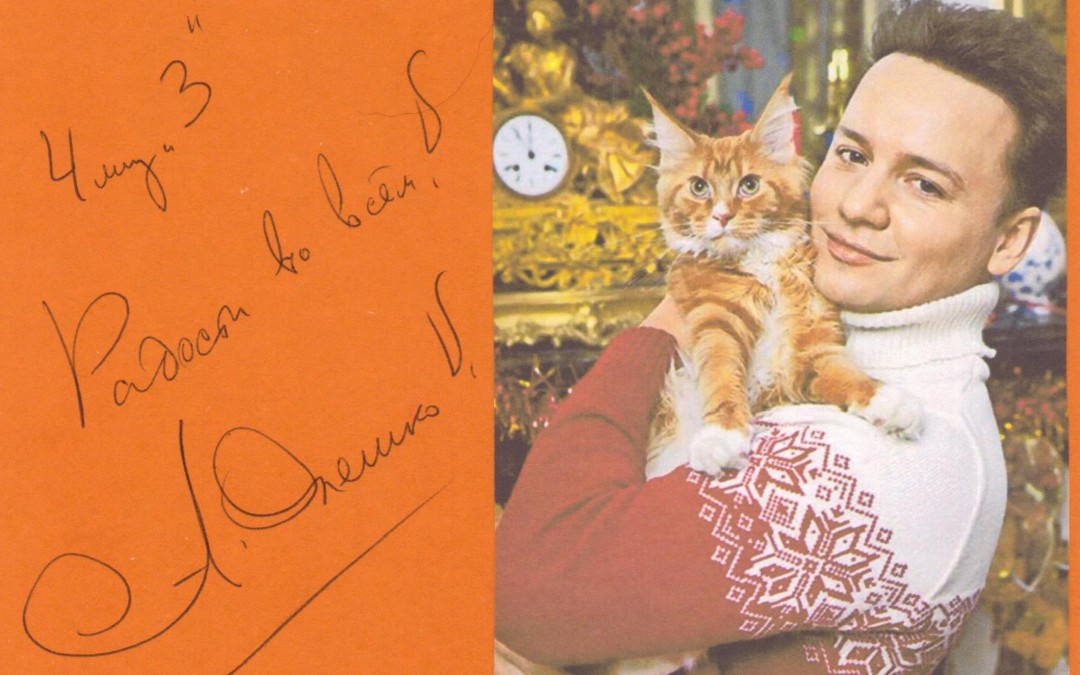 Радости во всём!
А. Олешко